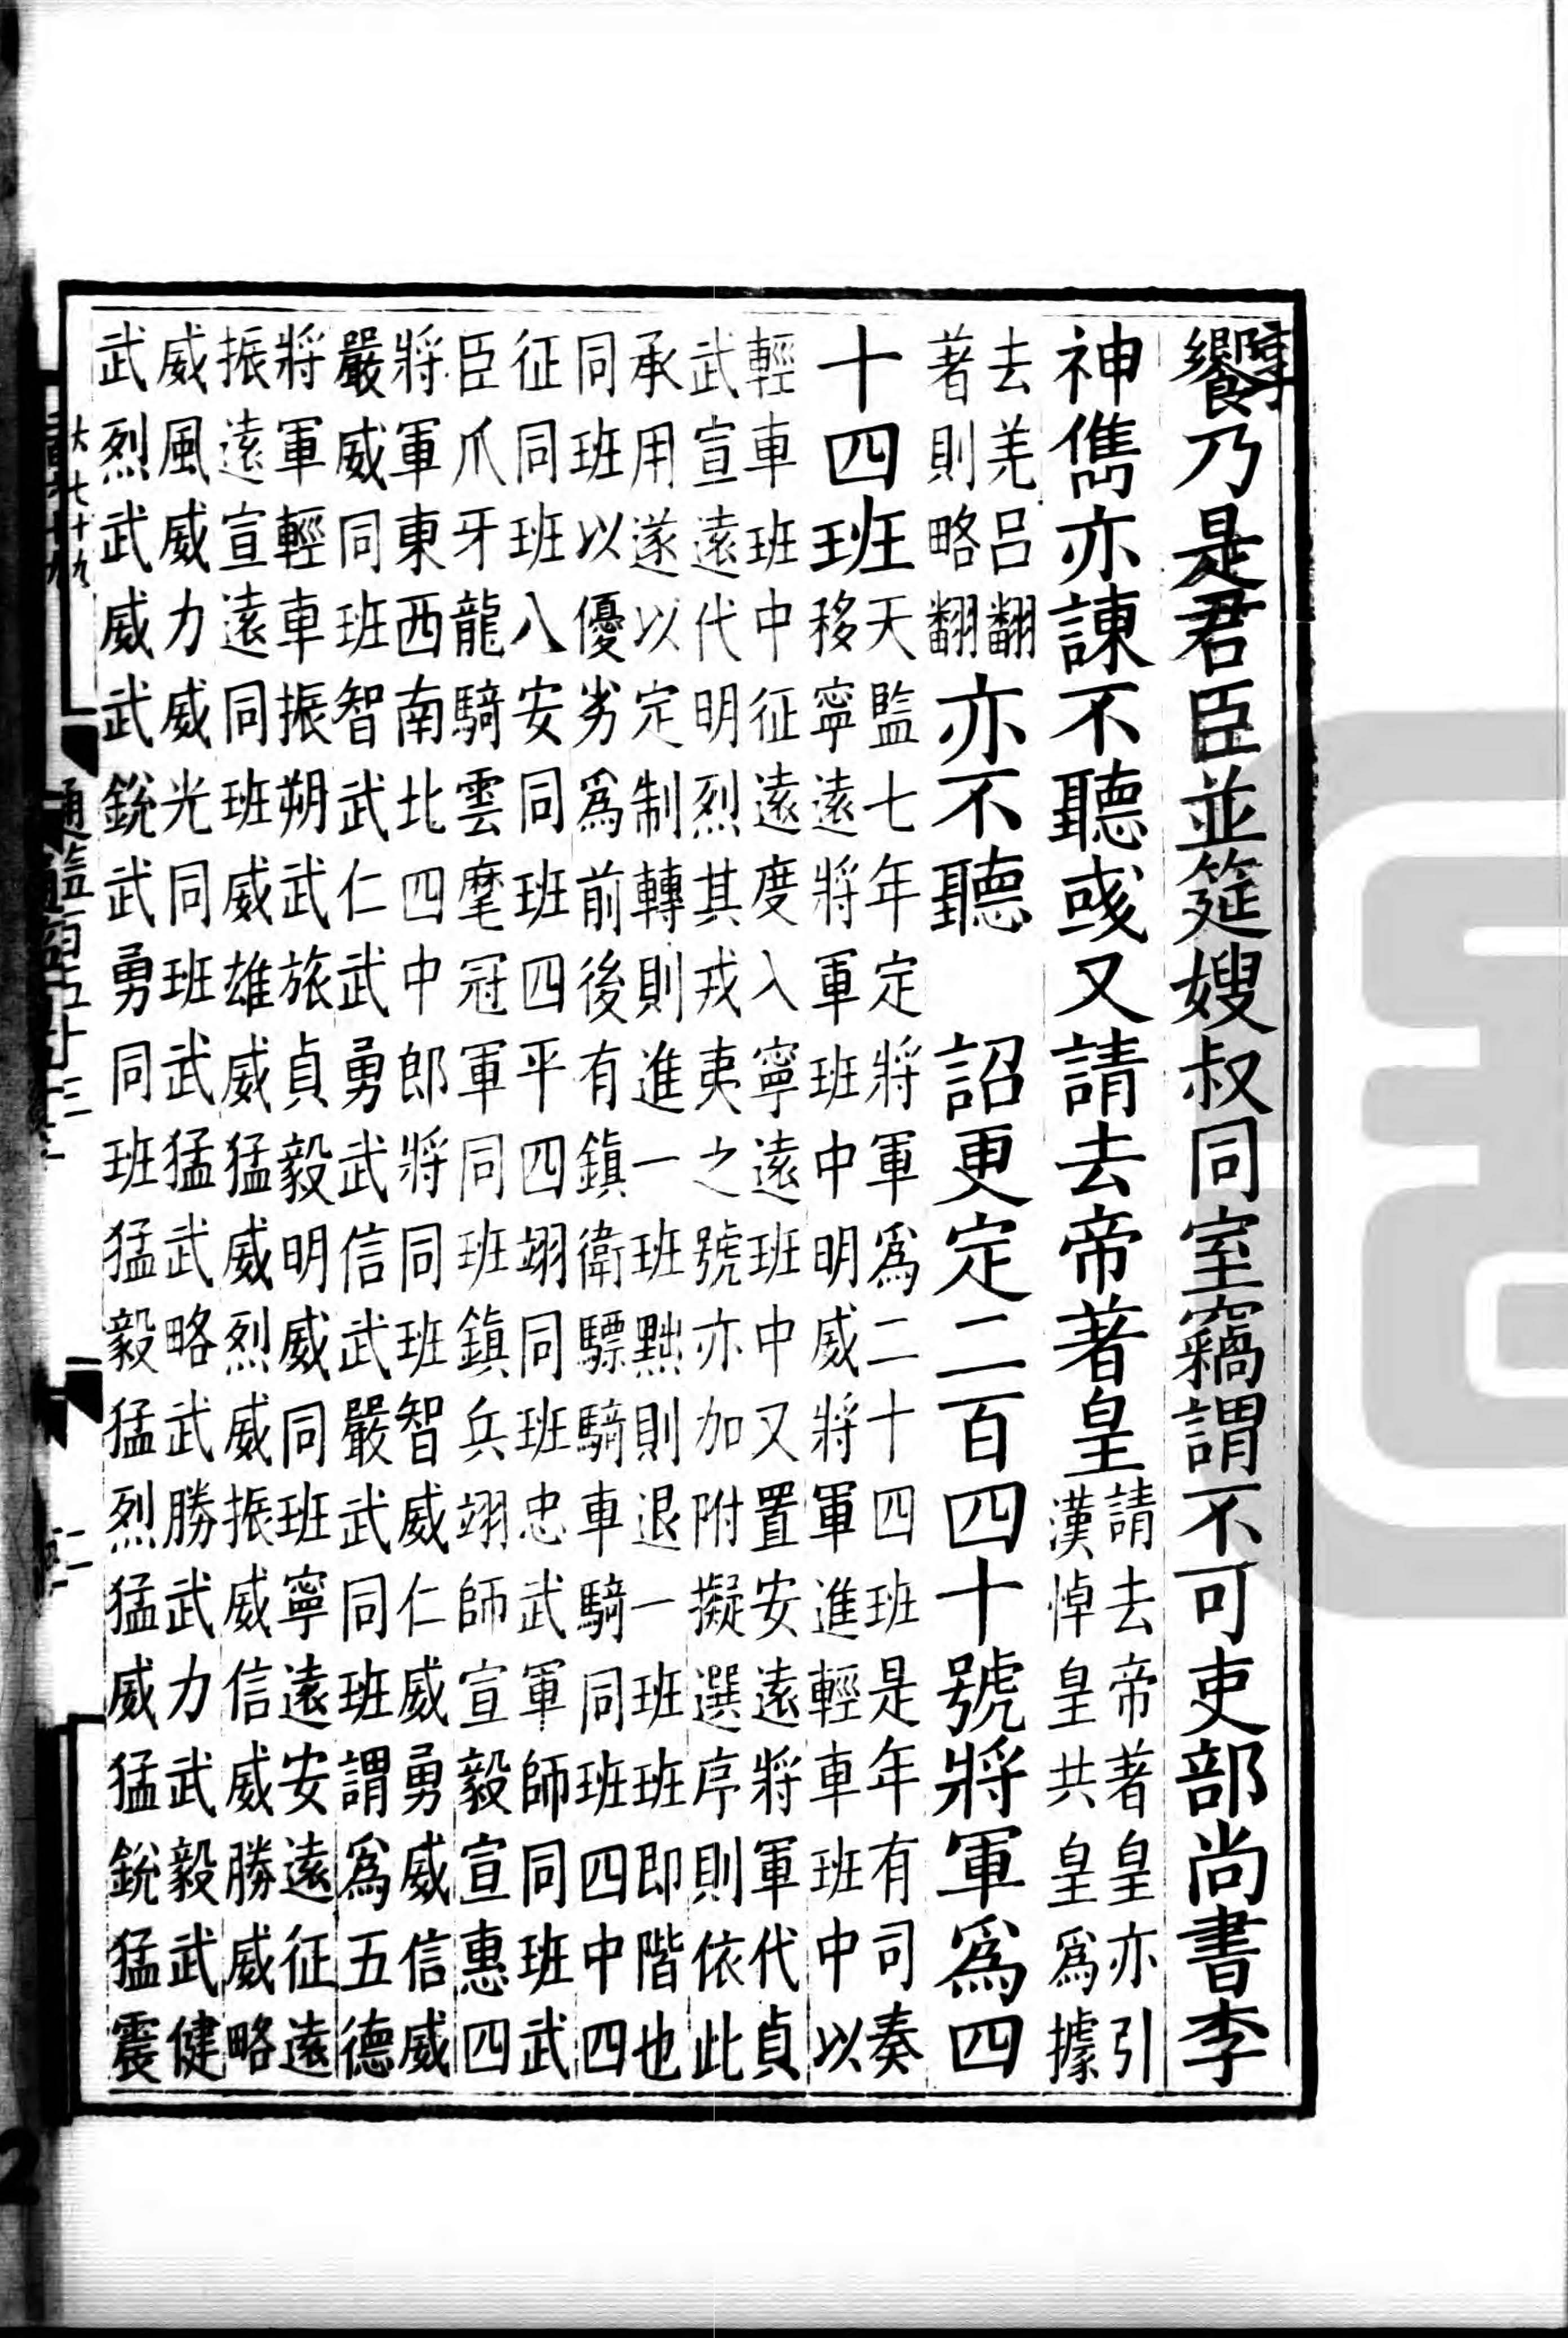 饗乃是君臣並筵嫂叔同室竊謂不可吏部尚書李
神儁亦諫不聽彧又請去帝著皇請去帝著皇亦引
漢悼皇共皇爲據
去羌呂翻
著則略翻亦不聽　詔更定二百四十號將軍爲四
十四班天監七年定將軍爲二十四班是年有司奏
移寧遠將軍班中明威將軍進輕車班中以
輕車班中征遠度入寧遠班中又置安遠將軍代貞
武宣遠代明烈其戎夷之號亦加附擬選序則依此
承用遂以定制轉則進一班黜則退一班班即階也
同班以優劣爲前後有鎮衛驃騎車騎同班四中四
征同班八安同班四平四翊同班忠武軍師同班武
臣爪牙龍騎雲麾冠軍同班鎮兵翊師宣毅宣惠四
將軍東西南北四中郎將同班智威仁威勇威信威
嚴威同班智武仁武勇武信武嚴武同班謂爲五德
將軍輕車振朔武旅貞毅明威同班寧遠安遠征遠
振遠宣遠同班威雄威猛威烈威振威信威勝威略
威風威力威光同班武猛武略武勝武力武毅武健
武烈武威武銳武勇同班猛毅猛烈猛威猛銳猛震
通鑑百五十三
二